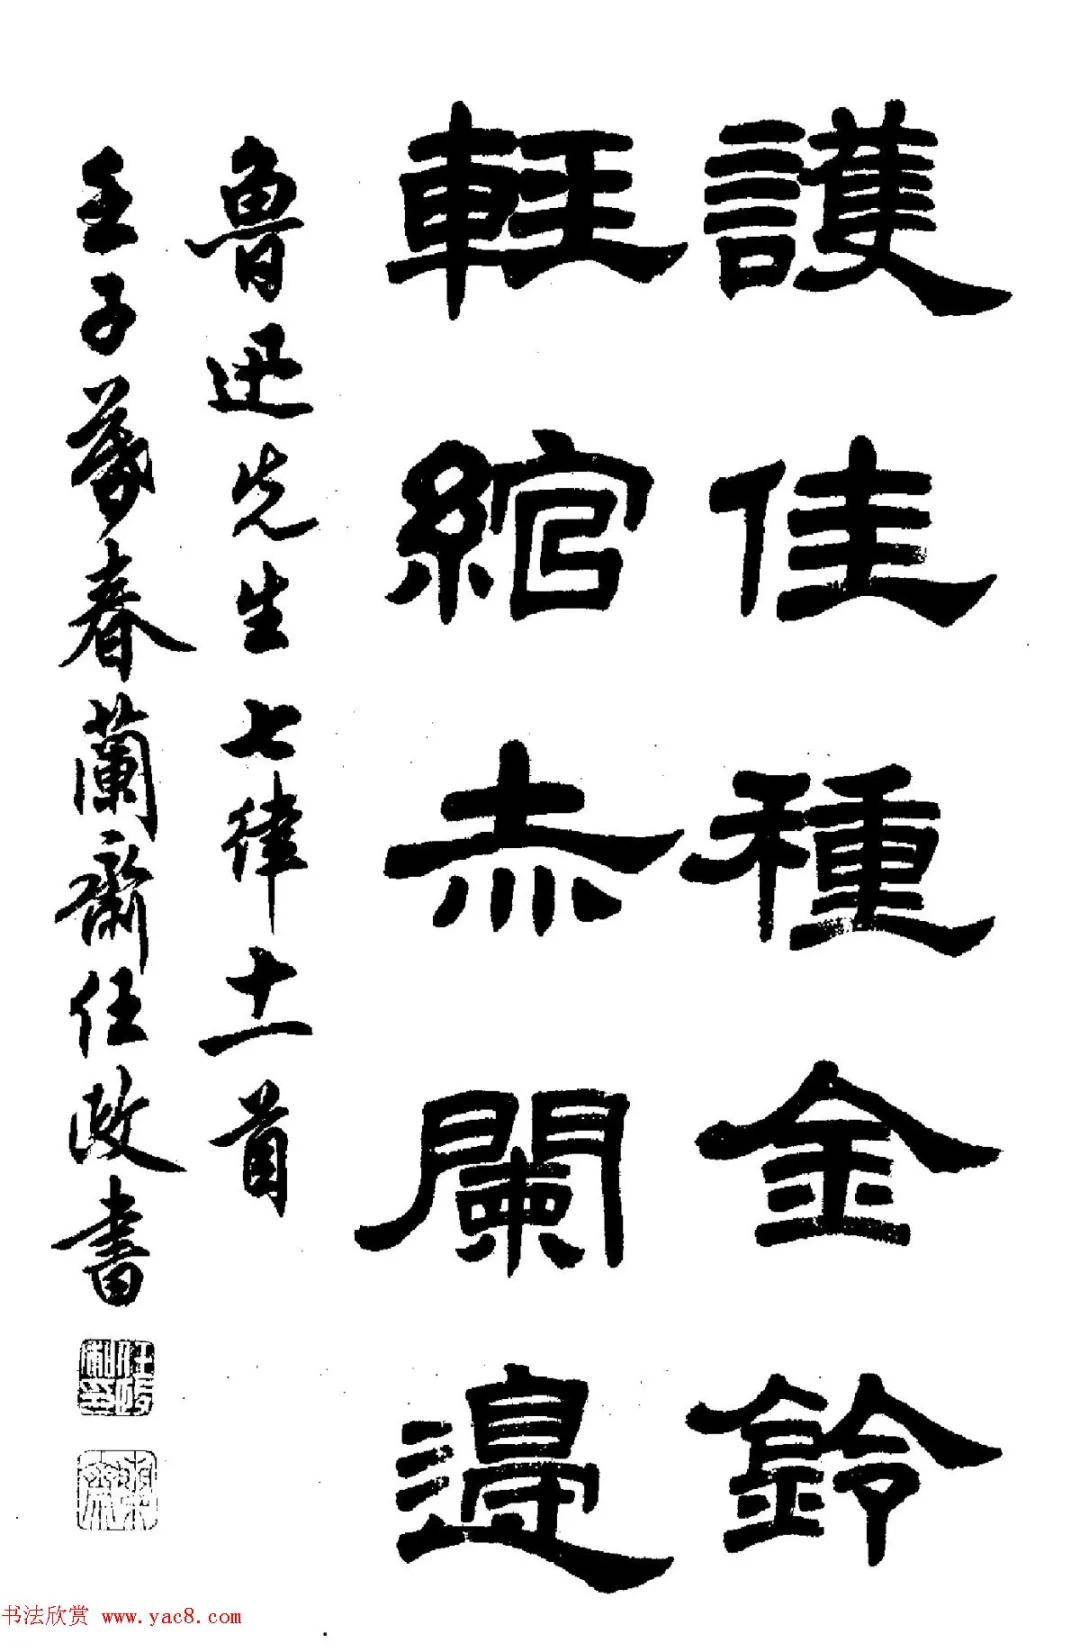 護佳種金鈴
輕綰赤闌邊
魯迅先生七律十一首
壬子暮春蘭齋任政書
书法欣赏 www.yac8.com